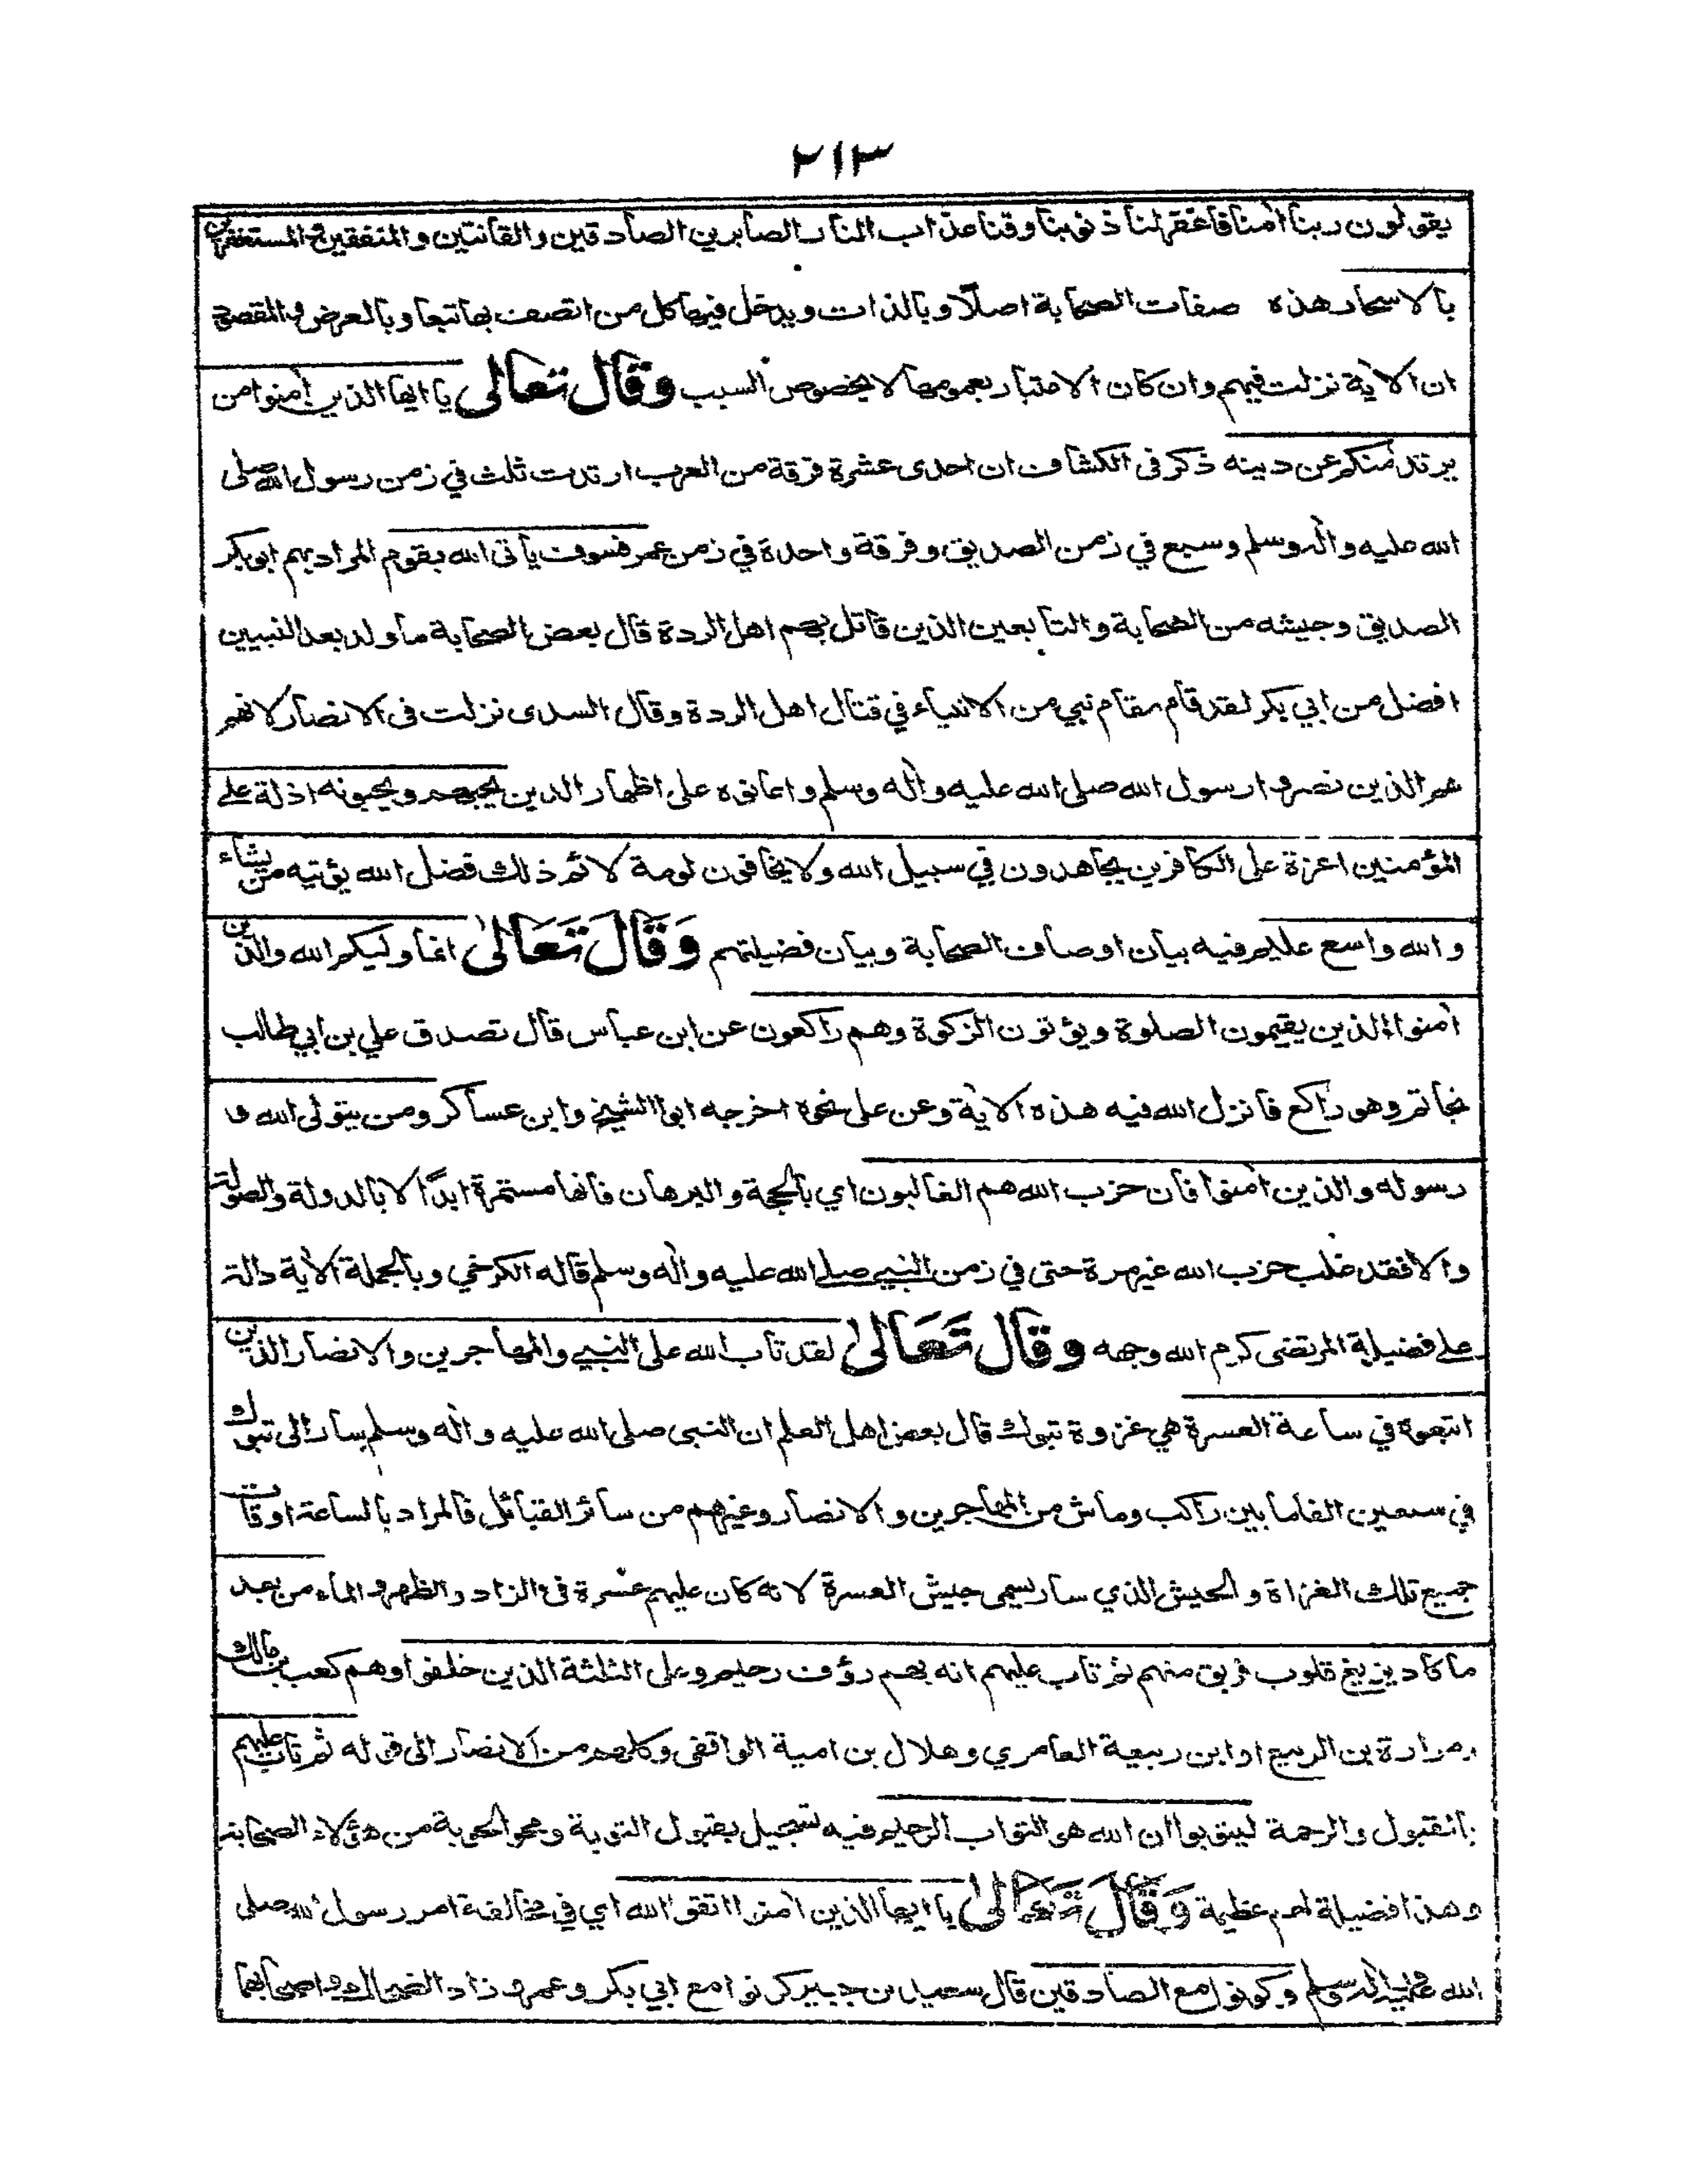 ٢١٣
يقولون ربنا اٰمنا فاغفر لنا ذنوبنا وقنا عذاب النار الصابرين الصادقين والقانتين والمنفقين والمستغفرين
بالاسحار هذه صفات الصحابة اصلًا وبالذات ويدخل فيها كل من اتصف بها تبعا وبالعرض
ان الاٰية نزلت فيهم وان كان الاعتبار بعمومها لا بخصوص السبب وقال تعالى يا ايها الذين اٰمنوا من
يرتد منكم عن دينه ذكر في الكشاف ان احدى عشرة فرقة من العرب ارتدت ثلث في زمن رسول الله صلى
الله عليه واٰله وسلم وسبع في زمن الصديق وفرقة واحدة في زمن عمر فسوف يأتى الله بقوم المراد بهم ابو بكر
الصديق وجيشه من الصحابة والتابعين الذين قاتل بهم اهل الردة قال بعض الصحابة ما ولد بعد النبيين
افضل من ابي بكر لقد قام مقام نبي من الانبياء في قتال اهل الردة وقال السدى نزلت فى الانصار لانهم
هم الذين نصروا رسول الله صلى الله عليه واٰله وسلم واعانوه على اظهار الدين يحبهم ويحبونه اذلة على
المؤمنين اعزة على الكافرين يجاهدون في سبيل الله ولا يخافون لومة لائم ذلك فضل الله يؤتيه من يشاء
والله واسع عليم فيه بيان اوصاف الصحابة وبيان فضيلتهم وَقَالَ تَعَالىٰ انما وليكم الله والذين
اٰمنوا الذين يقيمون الصلوة ويؤتون الزكوة وهم راكعون عن ابن عباس قال تصدق علي بن ابي طالب
بخاتم وهو راكع فانزل الله فيه هذه الاٰية وعن على نحوه اخرجه ابو الشيخ وابن عساكر ومن يتولى الله و
رسوله والذين اٰمنوا فان حزب الله هم الغالبون اي بالحجة والبرهان فانها مستمرة ابدًا لا بالدولة والصولة
والا فقد غلب حزب الله غير مرة حتى في زمن النبي صلى الله عليه واٰله وسلم قاله الكرخي وبالجملة الاٰية دالة
على فضيلة المرتضى كرم الله وجهه وقال تَعَالىٰ لقد تاب الله على النبي والمهاجرين والانصار الذين
اتبعوه في ساعة العسرة هي غزوة تبوك قال بعض اهل العلم ان النبى صلى الله عليه واٰله وسلم سار الى تبوك
في سبعين الفا ما بين راكب وماش من المهاجرين والانصار وغيرهم من سائر القبائل فالمراد بالساعة اوقات
جميع تلك الغزاة والجيش الذي سار يسمى جيش العسرة لانه كان عليهم عشرة في الزاد والظهر والماء من بعد
ما كاد يزيغ قلوب فريق منهم ثم تاب عليهم انه بهم رؤف رحيم وعلى الثلثة الذين خلفوا وهم كعب بن مالك
ومرارة بن الربيع او ابن ربيعة العامري وهلال بن امية الواقفى وكلهم من الانصار الى قوله ثم تاب عليهم
بالقبول والرحمة ليتوبوا ان الله هو التواب الرحيم فيه تسجيل بقبول التوبة ومحو الحوبة من هؤلاء الصحابة
وهذا فضيلة لهم عظيمة وَقَالَ تَعَالىٰ يا ايها الذين اٰمنوا اتقوا الله اي في مخالفة امر رسول الله صلى
الله عليه واٰله وسلم وكونوا مع الصادقين قال سعيد بن جبير كونوا مع ابي بكر وعمر وزاد الضحاك واصحابهما